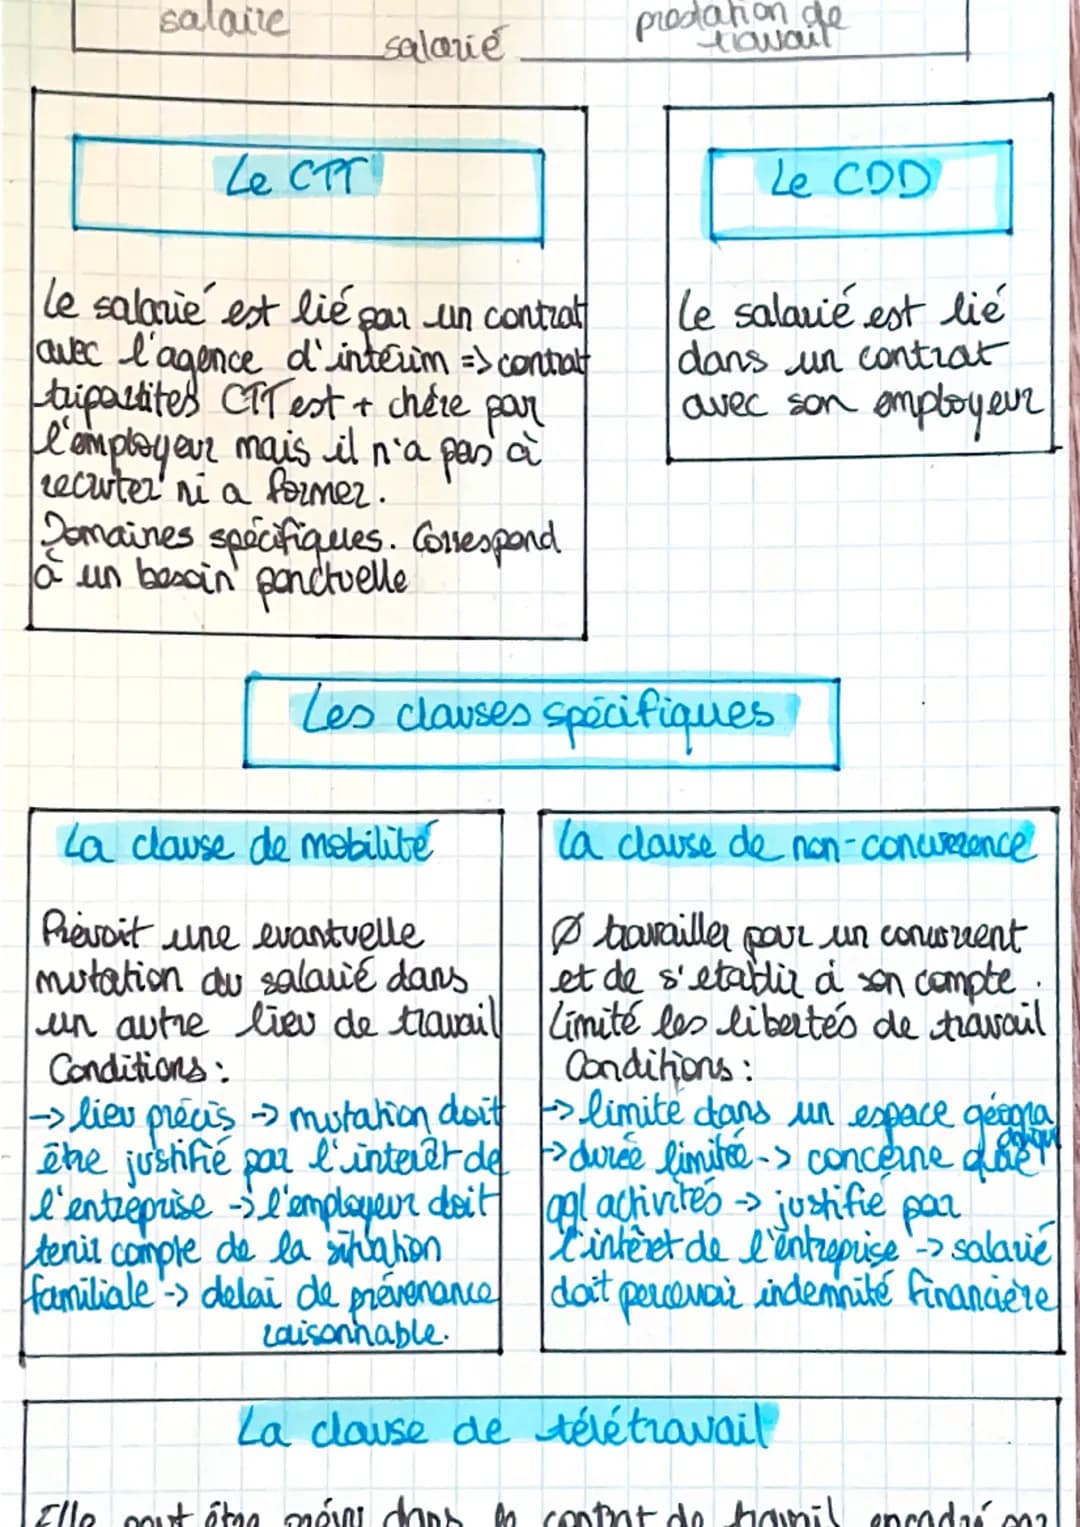 salaire
salarié
prestation de
travail
Le CTT
Le salarié est lié par un contrat
avec l'agence d'intérim => contrat
tripartites CTT est + chére par
l'employeur mais il n'a pas à
recruter ni a former.
Domaines spécifiques. Correspond
à un besoin ponctuelle
Le CDD
Le salarié est lié
dans un contrat
avec son employeur
Les clauses spécifiques
La clause de mobilité
Prévoit une evantuelle
mutation du salarié dans
un autre lieu de travail
Conditions :
-> lieu précis -> mutation doit
être justifié par l'interêt de
l'entreprise -> l'employeur doit
tenir compte de la situation
familiale -> delai de prévenance
raisonnable.
La clause de non-concurrence
Ø travailler pour un concurrent
et de s'etablir à son compte.
Limité les libertés de travail
Conditions :
-> limité dans un espace géogra
phique
-> durée limitée -> concerne que
qql activités -> justifié par
l'intêret de l'entreprise -> salarié
doit percevoir indemnité financière
La clause de télétravail
Elle peut être prévu dans le contrat de travail encadré par